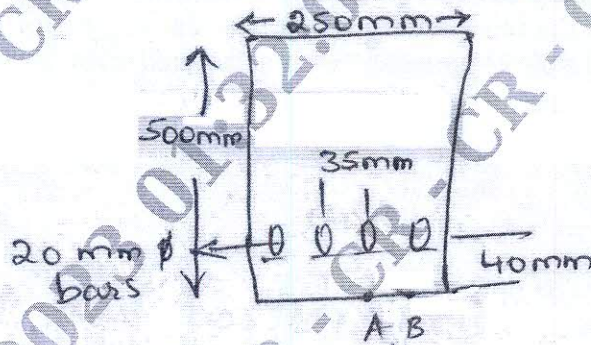 250mm
500mm
35mm
20 mm φ
bars
40mm
A B